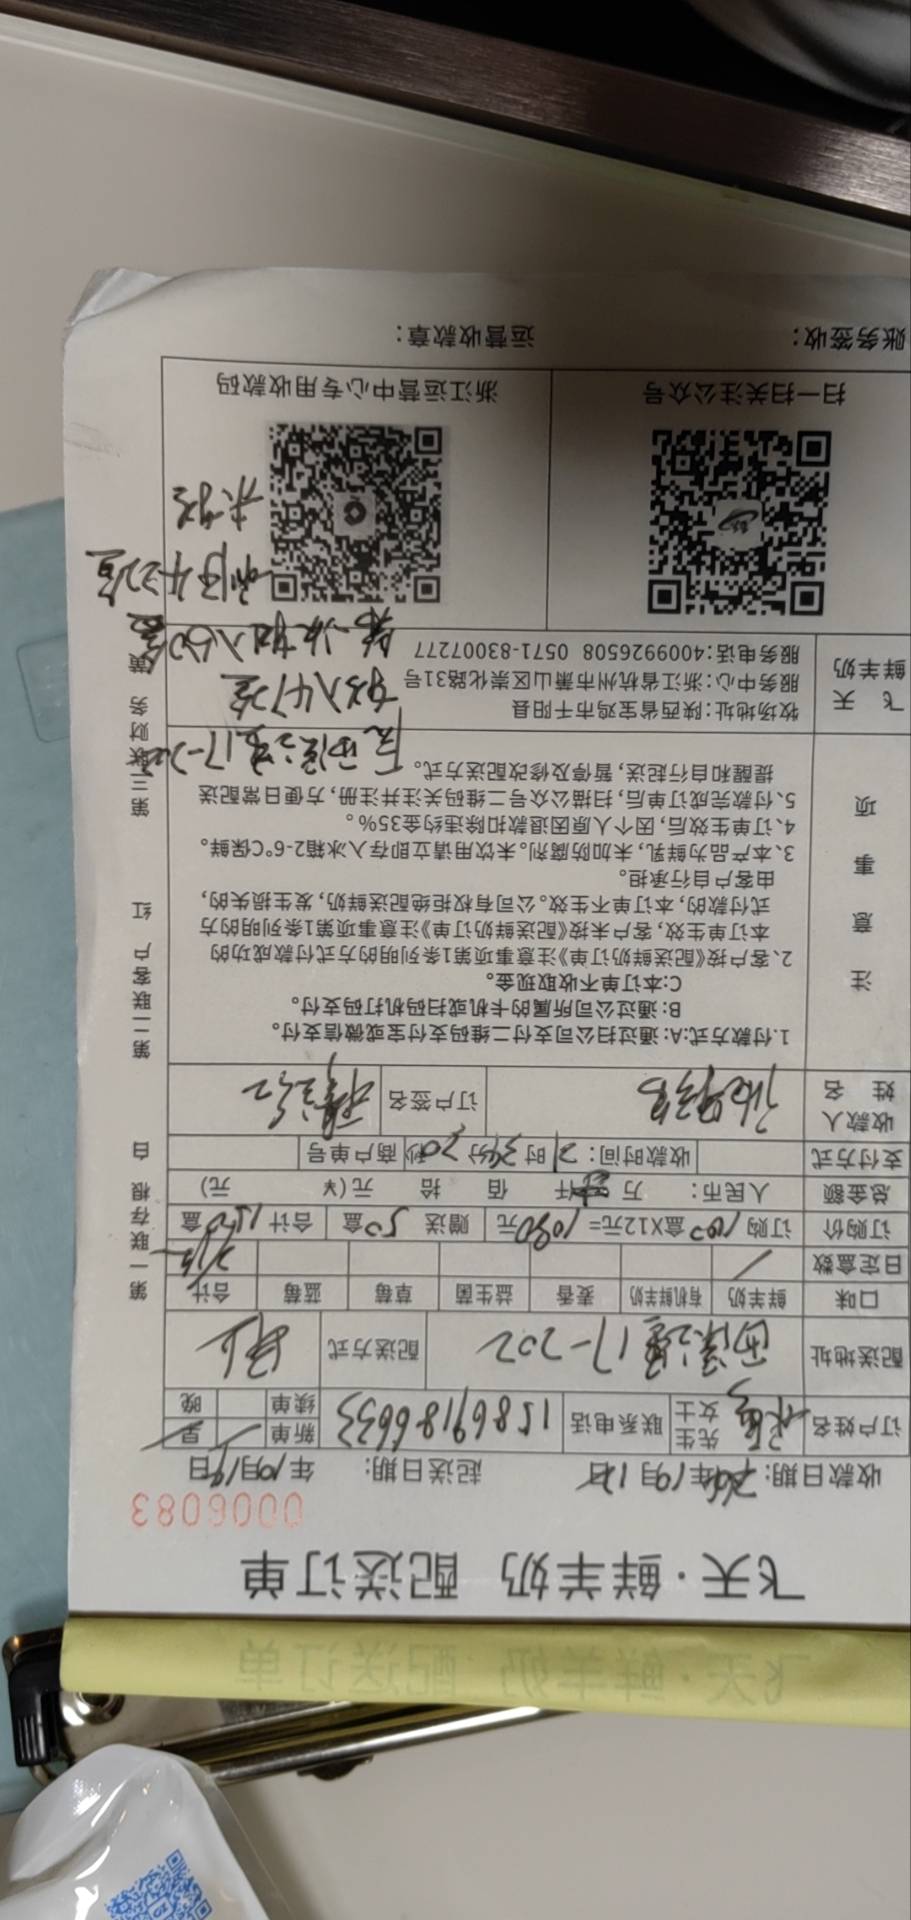 飞天·鲜羊奶 配送订单
飞天·鲜羊奶 配送订单
0006083
收款日期: 年10月12日 起送日期: 年10月19日
订户姓名 先生 女士 联系电话 15869186633 新单 续单 早 晚
配送地址 17-202 配送方式
口味 鲜羊奶 有机鲜羊奶 麦香 益生菌 草莓 蓝莓 合计
日定盒数
订购价 订购100盒X12元=1080元 赠送50盒 合计150盒
总金额 人民币: 万 仟 佰 拾 元(¥ 元)
支付方式 收款时间:21时36分20秒 商户单号
收款人姓名 订户签名
注意事项
1.付款方式:A:通过扫公司支付二维码支付宝或微信支付。
B:通过公司所属的卡机或扫码机打码支付。
C:本订单不收取现金。
2、客户按《配送鲜奶订单》注意事项第1条列明的方式付款成功的
本订单生效,客户未按《配送鲜奶订单》注意事项第1条列明的方
式付款的,本订单不生效。公司有权拒绝配送鲜奶,发生损失的,
由客户自行承担。
3、本产品为鲜乳,未加防腐剂。未饮用请立即存入冰箱2-6°C保鲜。
4、订单生效后,因个人原因退款扣除违约金35%。
5、付款完成订单后,扫描公众号二维码关注并注册,方便日常配送
提醒和自行起送,暂停及修改配送方式。
飞天鲜羊奶
牧场地址:陕西省宝鸡市千阳县
服务中心:浙江省杭州市萧山区崇化路31号
服务电话:4009926508 0571-83007277
17-202
转入47盒
扫一扫关注公众号 浙江运营中心专用收款码
账务签收: 运营收款章:
第一联存根 白 第二联客户 红 第三联财务 黄